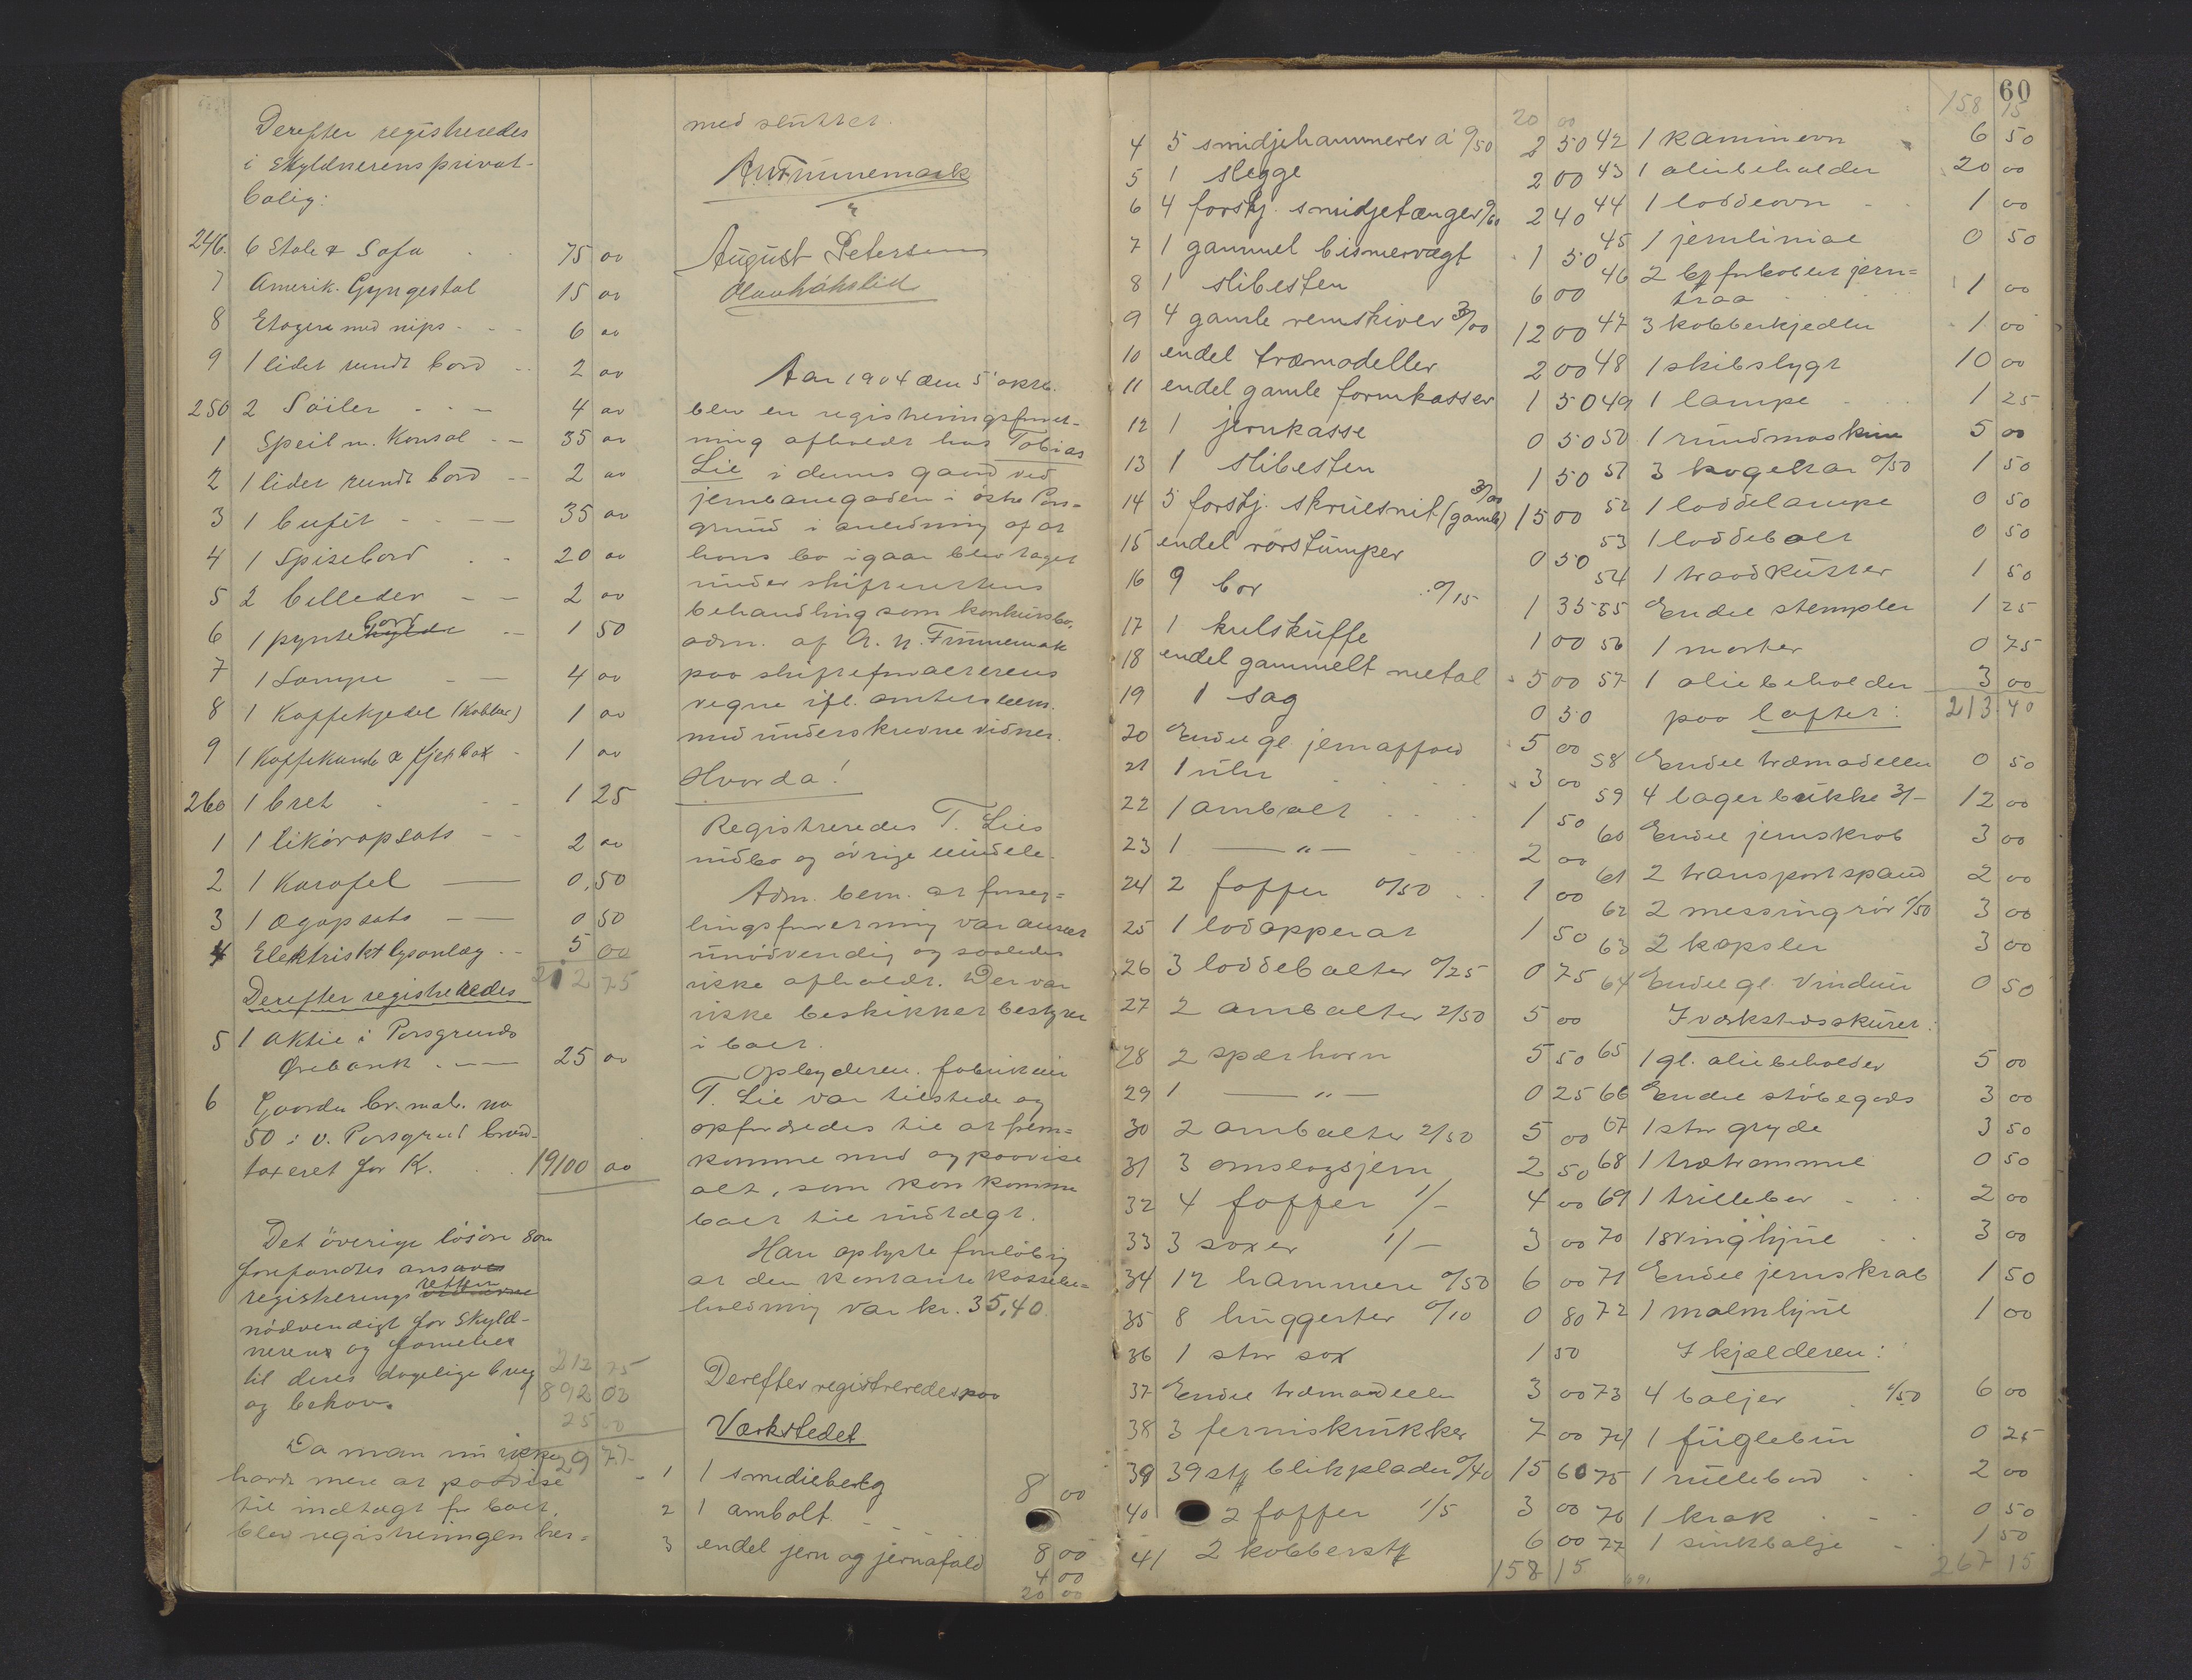 Derefter registreredes
i Skyldnerens privat-
bolig:
246. 6 Stole & Sofa 75 00
7 Amerik. Gyngestol 15 00
8 Etagere med nips 6 00
9 1 lidet rundt bord 2 00
250 2 Söiler 4 00
1 Speil m. Konsol 35 00
2 1 lidet rundt bord 2 00
3 1 bufét 35 00
4 1 Spisebord 20 00
5 2 billeder 2 00
6 1 pyntebord 1 50
7 1 Lampe 4 00
8 1 Kaffekjedel (Kobber) 1 00
9 1 Kaffekande & Kjexbox 1 00
260 1 bret 1 25
1 1 likøropsats 2 00
2 1 Karafel 0,50
3 1 Ægopsats 0 50
4 Elektriskt lysanlæg 5 00
212 75
Derefter registreredes
5 1 Aktie i Porsgrunds
Ørebank 25 00
6 Gaarden br. mat. no
50 i v. Porsgrund brand-
taxeret for K. 19100 00
Det överige lösöre som
forefandtes ansaaes
registrerings retten
nödvendigt for Skyld-
neren og familier
til deres dagelige brug
og behov.
212 75
892 03
25 00
Da man nu ikke
havde mere at paavise
til indtægt for boet,
blev registreringen her-
med sluttet.
A N Frünnemark
August Petersen
Olav Hakslid
Aar 1904 den 5' oktb.
blev en registreringsforret-
ning afholdt hos Tobias
Lie i dennes gaard ved
jernbanegaden i östre Pors-
grund i anledning af at
hans bo igaar blev taget
under skifterettens
behandling som konkursbo,
adm. af A. N. Frünnemark
paa skifteforvalterens
vegne ifl. amtets bem.
med underskrevne vidner.
Hvorda!
Registreredes T. Lies
indbo og övrige eiendele.
Adm. bem. at forseg-
lingsforretning var anseet
unödvendig og saaledes
ikke afholdt. Der var
ikke beskikket bestyrer
i boet.
Opbyderen fabrikeier
T. Lie var tilstede og
opfordredes til at frem-
komme med og paavise
alt, som kan komme
boet til indtægt.
Han oplyste forelöbig
at den kontante kassebe-
holdning var kr. 35,40.
Derefter registreredes paa
Værkstedet
1 1 smedieberlg 8 00
2 1 ambolt 8 00
3 endel jern og jernafald 4 00
20 00
20 00
4 5 smidjehammerer á 0/50 2 50
5 1 slegge 2 00
6 4 forskj. smidjetænger 0/60 2 40
7 1 gammel bismervægt 1 50
8 1 slibesten 6 00
9 4 gamle remskiver 3/00 12 00
10 endel træmodeller 2 00
11 endel gamle formkasser 1 50
12 1 jernkasse 0 50
13 1 slibesten 1 50
14 5 forskj. skruesnit (gamle) 3/00 15 00
15 endel rørstumper 0 50
16 9 bor 0/15 1 35
17 1 kulskuffe 1 00
18 endel gammelt metal 5 00
19 1 sag 0 50
20 Endel gl. jernaffald 5 00
21 1 uhr 3 00
22 1 ambolt 1 50
23 1 —"— 2 00
24 2 faffer 0/50 1 00
25 1 lodapperat 1 50
26 3 loddebolter 0/25 0 75
27 2 ambolter 2/50 5 00
28 2 spærhorn 5 50
29 1 —"— 0 25
30 2 ambolter 2/50 5 00
31 3 omslagsjern 2 50
32 4 faffer 1/- 4 00
33 3 saxer 1/- 3 00
34 12 hammere 0/50 6 00
35 8 huggerter 0/10 0 80
36 1 stor sax 1 50
37 Endel træmodeller 3 00
38 3 ferniskrukker 7 00
39 39 stk blikplader 0/40 15 60
40 2 faffer 1/5 3 00
41 2 kobberstk 6 00
158 15
60
158 15
42 1 kaminovn 6 50
43 1 oliebeholder 20 00
44 1 loddeovn 1 00
45 1 jernlinial 0 50
46 2 forkobblet jern-
traa 1 00
47 3 kobberkjedler 1 00
48 1 skibslygt 10 00
49 1 lampe 1 25
50 1 rundmaskine 5 00
51 3 kogekar 0/50 1 50
52 1 loddelampe 0 50
53 1 loddebolt 0 50
54 1 traadkutter 1 50
55 Endel stempler 1 25
56 1 morter 0 75
57 1 oliebeholder 3 00
213 40
paa loftet:
58 Endel træmodeller 0 50
59 4 lagerbukke 3/- 12 00
60 Endel jernskrab 3 00
61 2 transportspand 2 00
62 2 messingrör 1/50 3 00
63 2 kapsler 3 00
64 Endel gl. Vinduer 0 50
I værkstedsskuret:
65 1 gl. oliebeholder 5 00
66 Endel stöbegods 3 00
67 1 stor gryde 3 50
68 1 trætromme 0 50
69 1 trillebör 2 00
70 1 svinghjul 3 00
71 Endel jernskrab 1 50
72 1 malmhjul 1 00
I kjælderen:
73 4 baljer 1/50 6 00
74 1 fuglebur 0 25
75 1 rullebord 2 00
76 1 krak 0 50
77 1 sinkbalje 1 50
267 15